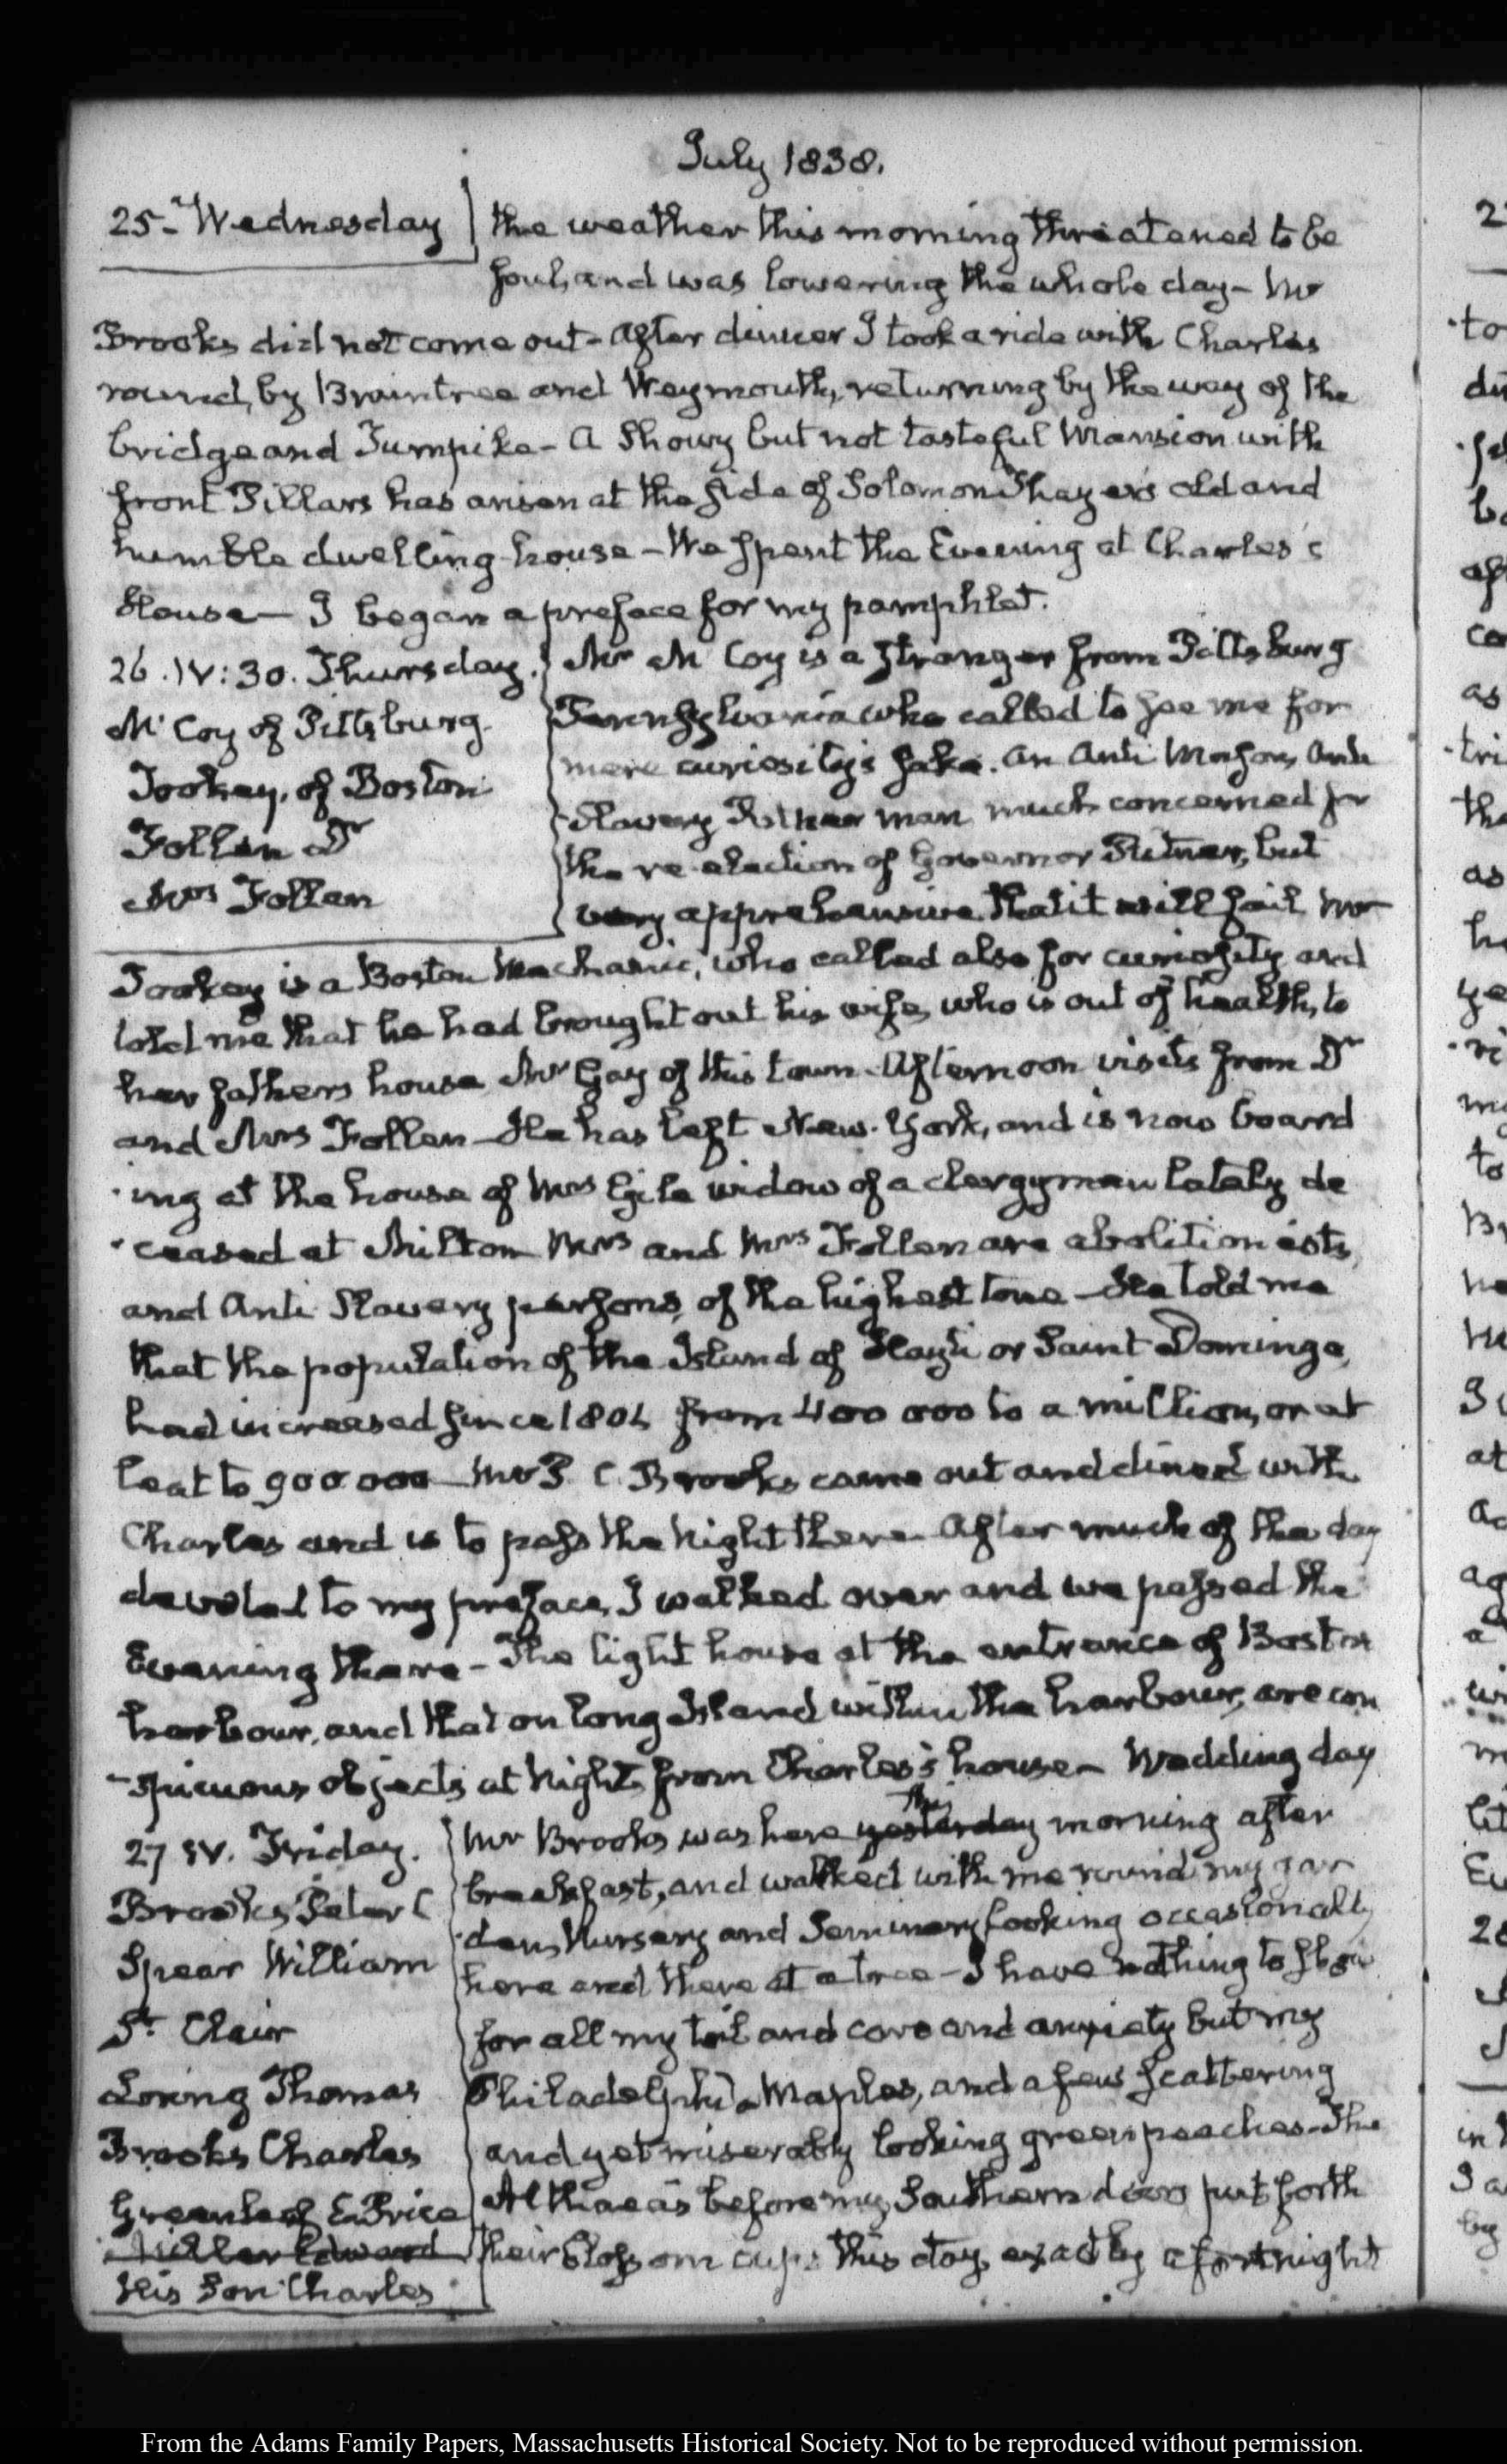 July 1838.
25. Wednesday
the weather this morning threatened to be
foul, and was lowering the whole day - Mr
Brooks did not come out - After dinner I took a ride with Charles
round, by Braintree and Weymouth, returning by the way of the
bridge and Turnpike - A Showy but not tasteful Mansion with
front Pillars has arisen at the side of Solomon Thayer's old and
humble dwelling-house - We spent the Evening at Charles's
House - I began a preface for my pamphlet.
26. IV:30. Thursday.
McCoy of Pittsburg.
Tookey, of Boston
Follen Dr
Mrs Follen
Mr McCoy is a stranger from Pittsburg
Pennsylvania who called to see me for
mere curiosity's sake. An Anti Mason, Anti
Slavery man much concerned for
the re-election of Governor Ritner, but
very apprehensive that it will fail Mr
Tookey is a Boston Mechanic, who called also for curiosity and
told me that he had brought out his wife, who is out of health, to
her fathers house Mr Gay of this town - Afternoon visits from Dr
and Mrs Follen - He has left New-York, and is now board
-ing at the house of Mrs Gile widow of a clergyman lately de
-ceased at Milton Mrs and Mrs Follen are abolitionists,
and Anti Slavery persons, of the highest tone - He told me
that the population of the Island of Hayti or Saint Domingo,
had increased since 1804 from 400 000 to a million, or at
leat to 900 000 - Mr P. C. Brooks came out and dined with
Charles and is to pass the Night there - After much of the day
devoted to my preface, I walked over and we passed the
Evening there - The light house at the entrance of Boston
harbour, and that on long Island within the harbour, are con
-spicuous objects at Night, from Charles's house - Wedding day
27 IV. Friday.
Brooks Peter C
Spear William
St. Clair
Loring Thomas
Brooks Charles
Greenleaf E. Price
Miller Edward
His Son Charles
Mr Brooks was here yesterday This morning after
breakfast, and walked with me round my gar
-den, Nursery and Seminary looking occasionally
here and there at a tree - I have nothing to show
for all my toil and care and anxiety but my
Philadelphia Maples, and a few scattering
and yet miserably looking green peaches - The
Althaeas before my Southern door put forth
their blossom cups this day, exactly a fortnight
From the Adams Family Papers, Massachusetts Historical Society. Not to be reproduced without permission.